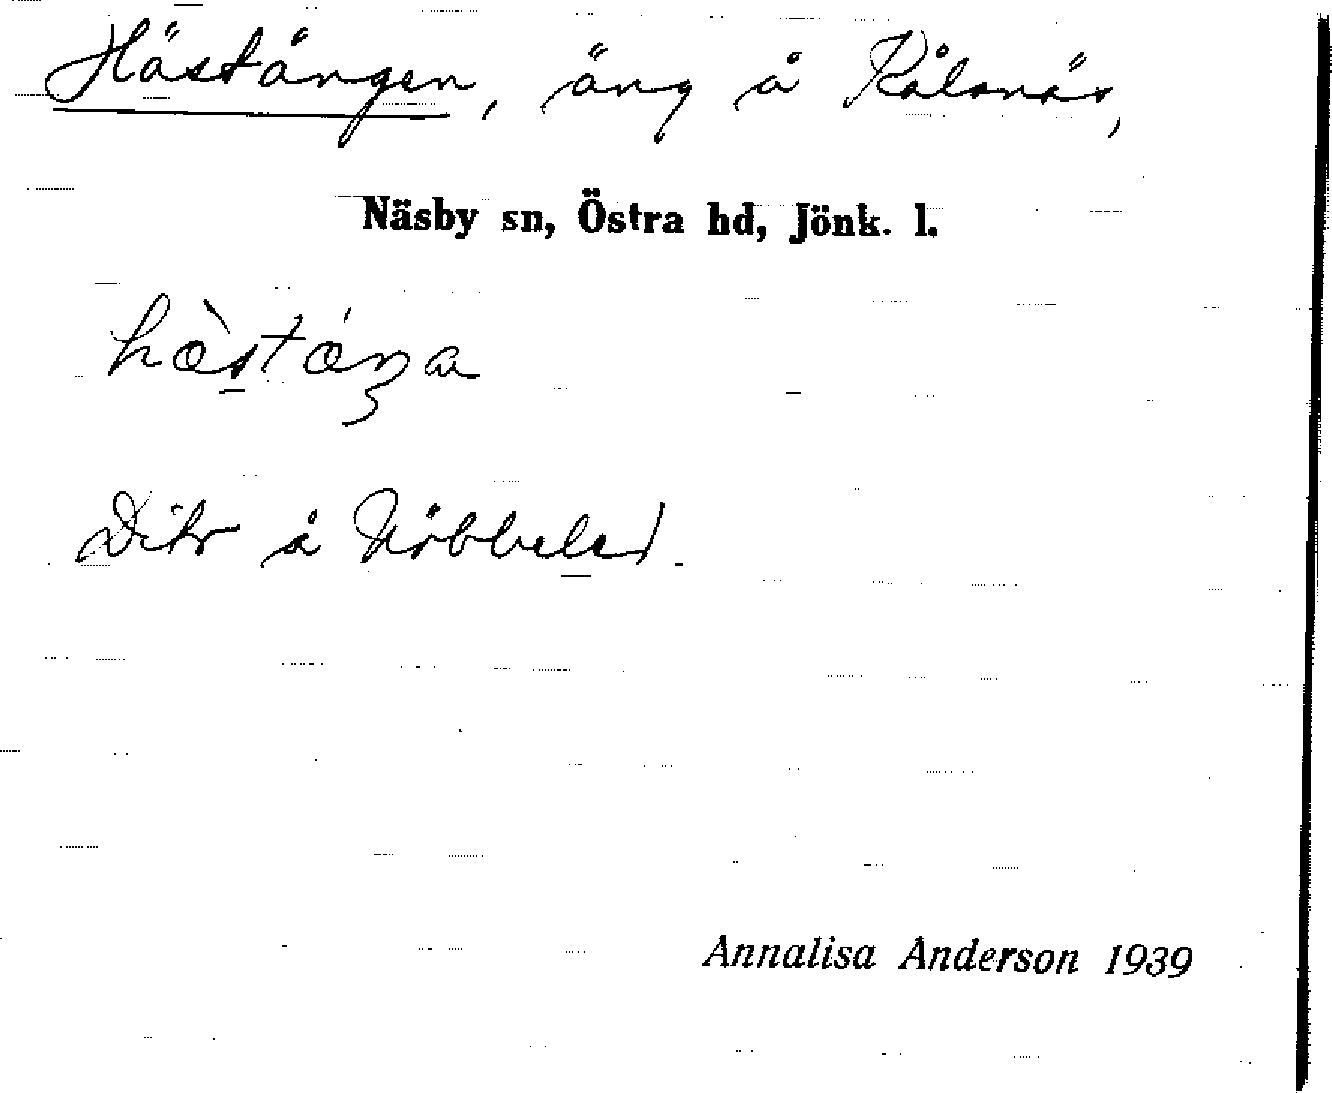 Hästängen, äng å Rålsnäs,
Näsby sn, Östra hd, Jönk. l.
hæ̀stǽŋa
Dito å Nöbbeled.
Annalisa Anderson 1939